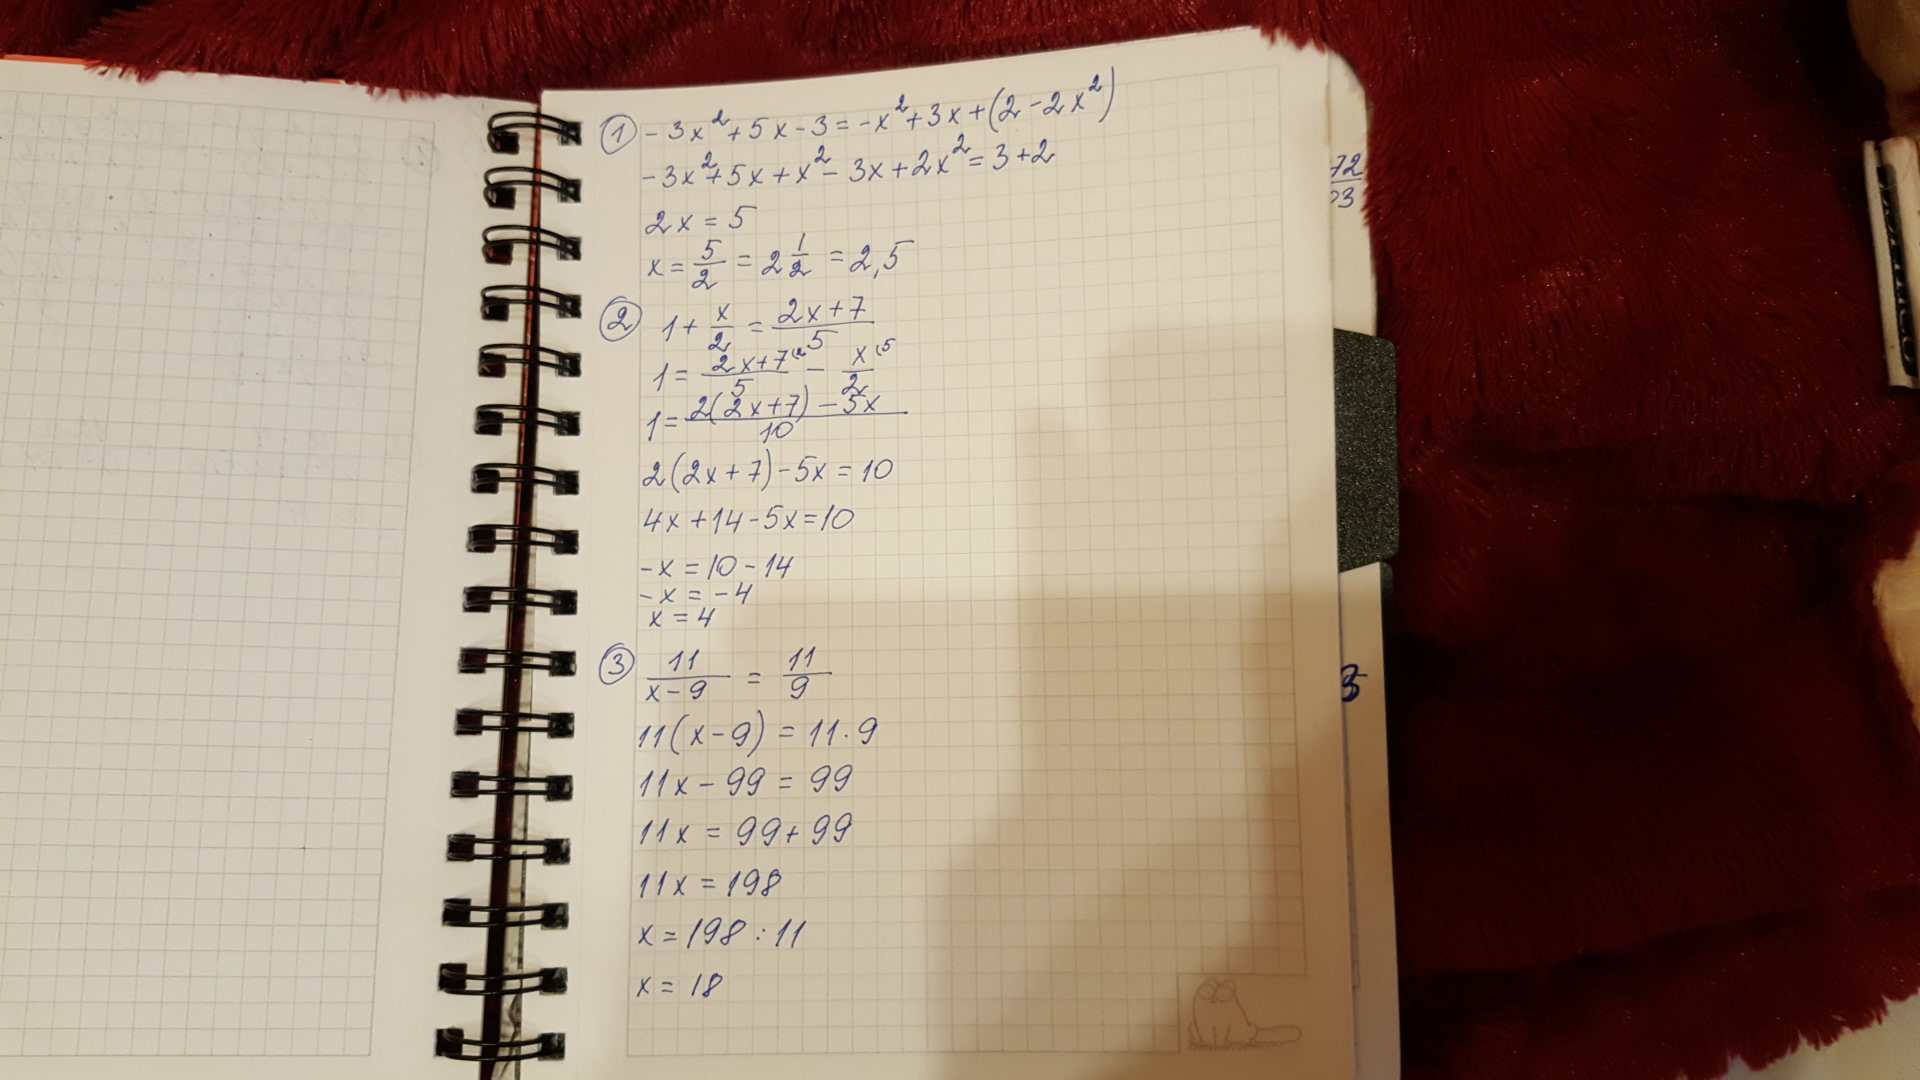 ① -3x²+5x-3=-x²+3x+(2-2x²)
-3x²+5x+x²-3x+2x²=3+2
2x=5
x=5/2=2 1/2=2,5
② 1+x/2=(2x+7)/5
1=(2x+7)/5 ⁽² - x/2 ⁽⁵
1=(2(2x+7)-5x)/10
2(2x+7)-5x=10
4x+14-5x=10
-x=10-14
-x=-4
x=4
③ 11/(x-9)=11/9
11(x-9)=11·9
11x-99=99
11x=99+99
11x=198
x=198:11
x=18
72
3